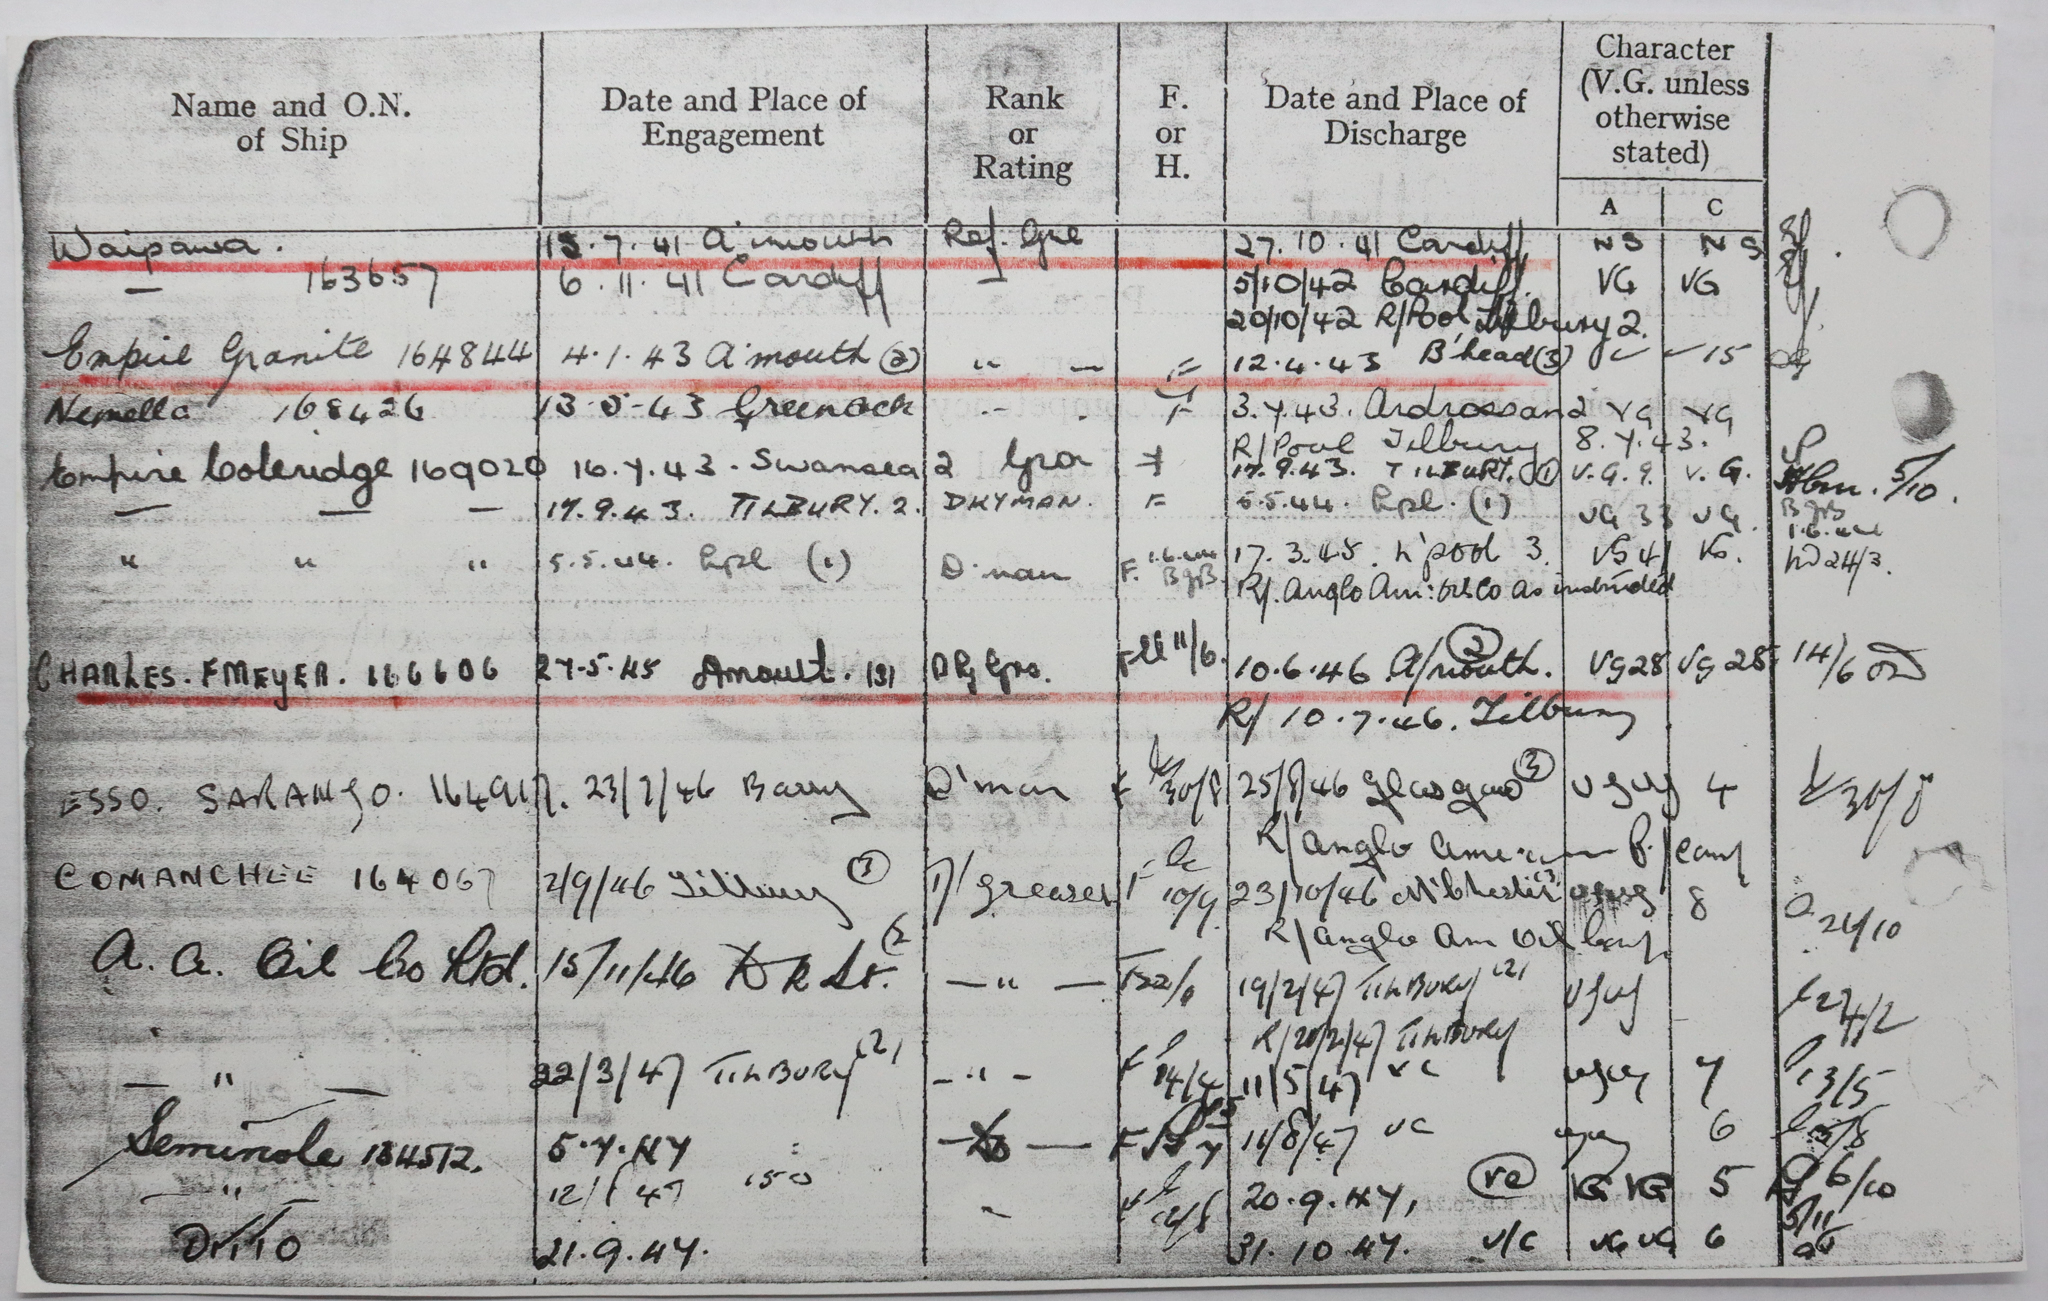 Name and O.N. of Ship
Date and Place of Engagement
Rank or Rating
F. or H.
Date and Place of Discharge
Character (V.G. unless otherwise stated)
A C
Waipawa. 15.7.41 A'mouth Ref. Gre 27.10.41 Cardiff NS NS
— 163657 6.11.41 Cardiff — 5/10/42 Cardiff. VG VG
20/10/42 R/Pool Tilbury 2.
Empire Granite 164844 4.1.43 A'mouth (2) " — F 12.4.43 B'head (3) ✓ ✓ 15
Nemella 168426 13-5-43 Greenock F 3.7.43. Ardrossan 2 VG VG
R/Pool Tilbury 8.7.43.
Empire Coleridge 169020 16.7.43. Swansea 2 F 17.9.43. TILBURY. (1) V.G. 9. V.G. 5/10.
— — — 17.9.43. TILBURY. 2. DKYMAN. F 5.5.44. Lpl. (1) VG 33 VG.
" " " 5.5.44. Lpl (1) D'man F. 17.3.45. L'pool 3. VG 41 VG. 24/3.
R/. Anglo Am: Oil Co as instructed
CHARLES. F MEYER. 166606 27.5.45 Amouth. (3) 11/6. 10.6.46 A/mouth. (2) VG 28 VG 28 14/6
R/ 10.7.46. Tilbury
ESSO. SARANGO. 164917. 23/7/46 Barry D'man F 30/8 25/8/46 Glasgow (3) VG VG 4 30/8
R/ Anglo American P/Comp
COMANCHEE 164067 2/9/46 Tilbury (3) D/ greaser F 10/9 23/10/46 M'chester VG VG 8 24/10
R/ Anglo Am Oil Comp.
A. A. Oil Co Ltd. 15/11/46 (2 — " — 19/2/47 TILBURY (2) VG VG
R/ 20/2/47 TILBURY
— " — 22/3/47 TILBURY (2) — " — F 14/4 11/5/47 VC VG VG 7 13/5
Seminole 184512. 5.7.47 — — F 11/8/47 VC VG VG 6
— " 20.9.47, VC VG VG 5 6/10
DITTO 21.9.47. 31.10.47. V/C VG VG 6 5/11